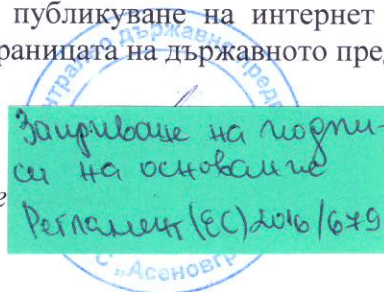 публикуване на интернет
раницата на държавното пред
Заприваще на подпи-
си на основание
е
Регламент (ЕС) 2016/679
С „Асеновг